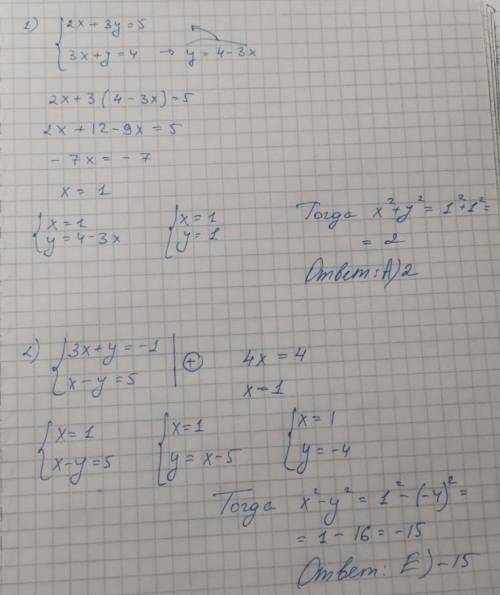 1) { 2x + 3y = 5
3x + y = 4 → y = 4 - 3x
2x + 3(4 - 3x) = 5
2x + 12 - 9x = 5
- 7x = - 7
x = 1
{ x = 1 { x = 1
y = 4 - 3x y = 1
Тогда x² + y² = 1² + 1² =
= 2
Ответ: A) 2
2) { 3x + y = -1 | + 4x = 4
x - y = 5 x = 1
{ x = 1 { x = 1 { x = 1
x - y = 5 y = x - 5 y = -4
Тогда x² - y² = 1² - (-4)² =
= 1 - 16 = -15
Ответ: E) -15